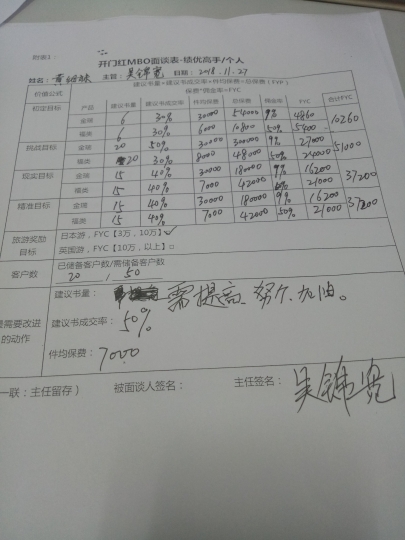 附表1：
开门红MBO面谈表-绩优高手/个人
姓名： 主管：吴锦宽 日期：2018.11.27
价值公式 建议书量*建议书成交率=件均保费=总保费（FYP）
保费*佣金率=FYC
初定目标 产品 建议书量 建议书成交率 件均保费 总保费 佣金率 FYC 合计FYC
金瑞 6 30% 30000 54000 9% 4860 10260
福类 6 30% 6000 10800 50% 5400
挑战目标 金瑞 20 50% 30000 300000 9% 27000 51000
福类 20 30% 8000 48000 50% 24000
现实目标 金瑞 15 40% 30000 180000 9% 16200 37200
福类 15 40% 7000 42000 21000
精准目标 金瑞 15 40% 30000 180000 9% 16200 37200
福类 15 40% 7000 42000 50% 21000
旅游奖励目标 日本游，FYC【3万，10万）√
英国游，FYC【10万，以上）□
客户数 已储备客户数/需储备客户数
20 , 50
需要改进的动作 建议书量： 需提高、努个、加油。
建议书成交率：50%
件均保费：7000
一联：主任留存） 被面谈人签名： 主任签名：吴锦宽